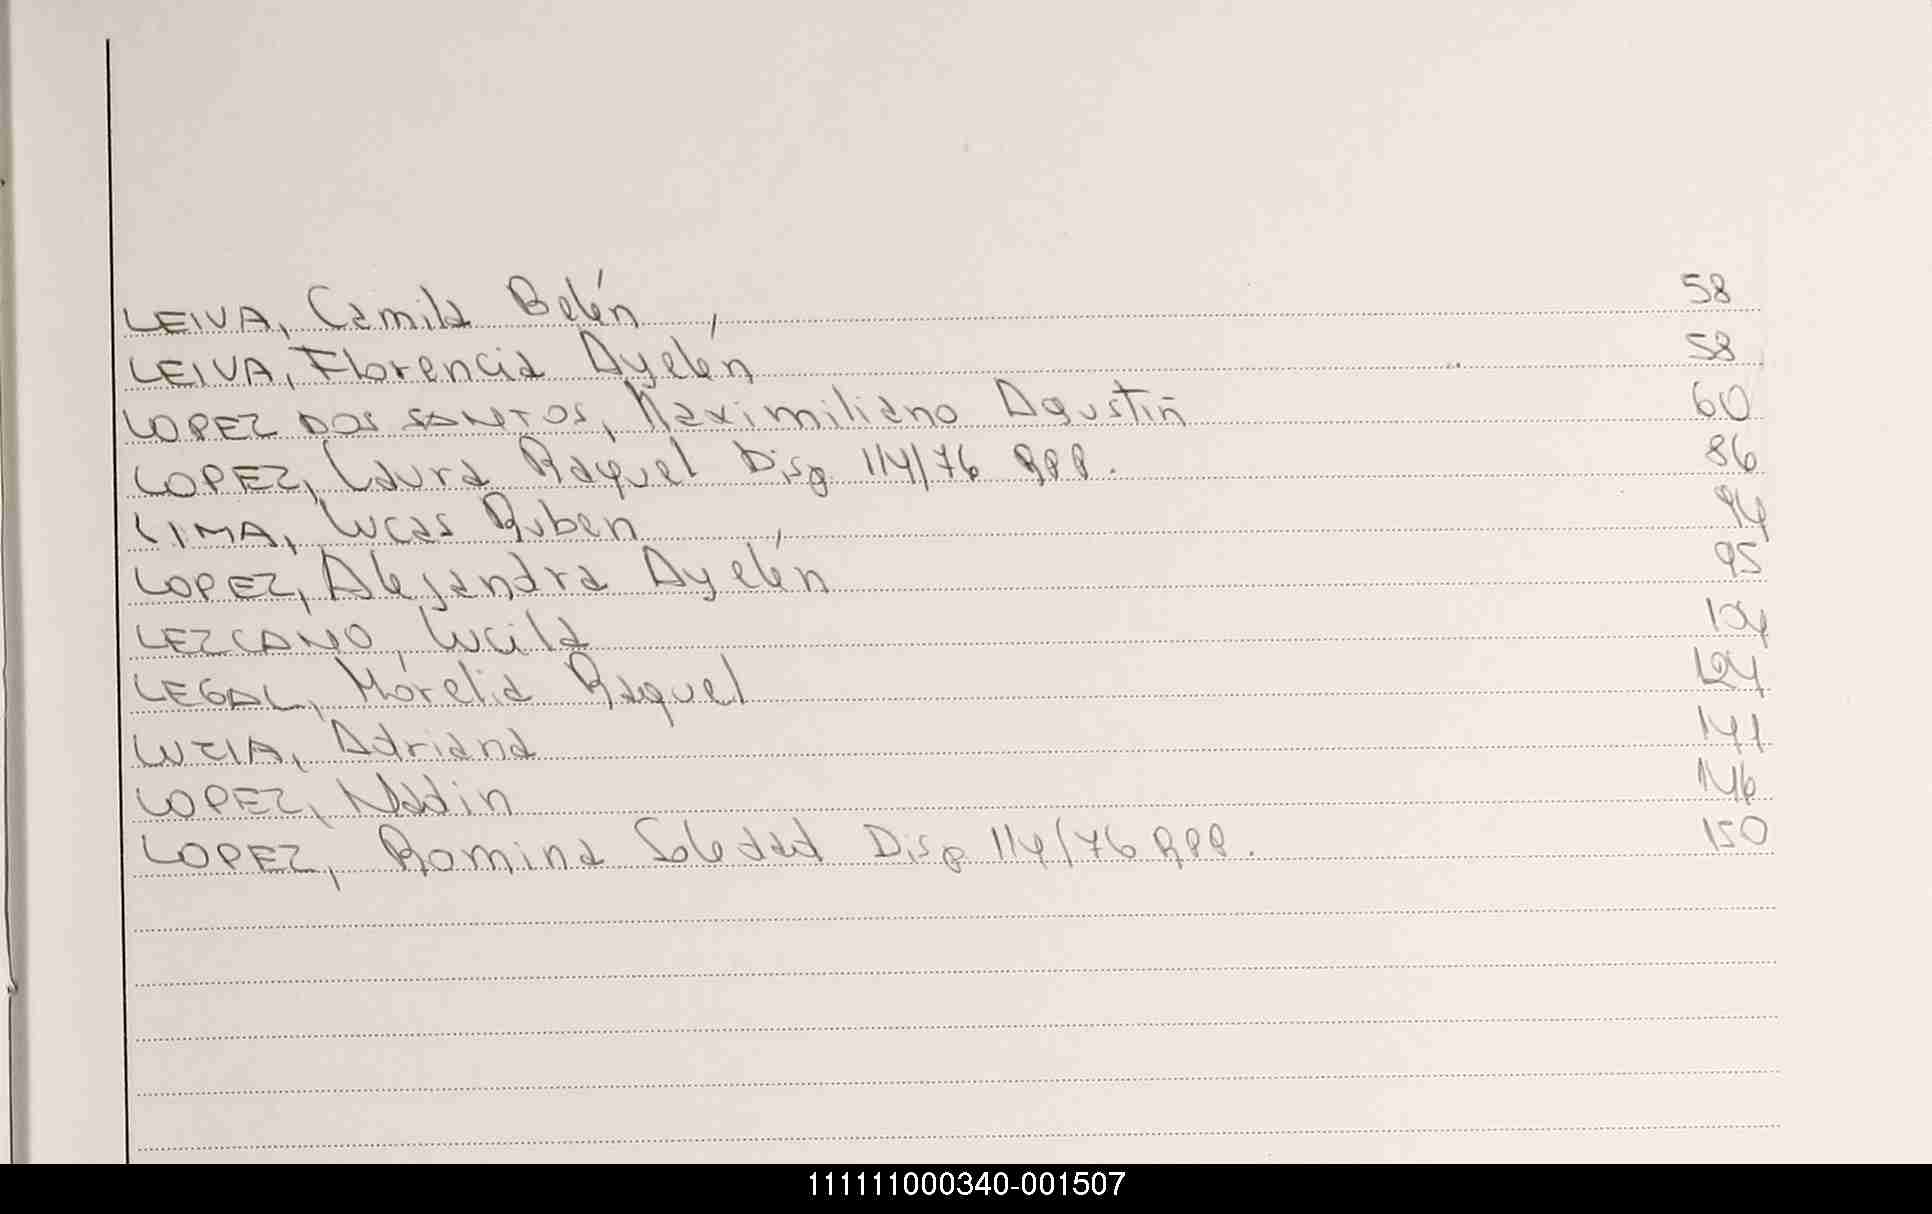 LEIVA, Camila Belén 58
LEIVA, Florencia Ayelén 58
LOPEZ DOS SANTOS, Maximiliano Agustin 60
LOPEZ, Laura Raquel Disp. 114/76 RPP. 86
LIMA, Lucas Ruben 94
LOPEZ, Alejandra Ayelén 95
LEZCANO, Lucila 104
LEGAL, Morelia Raquel 124
LUZIA, Adriana 141
LOPEZ, Nadin 146
LOPEZ, Romina Soledad Disp 114/76 RPP. 150
111111000340-001507